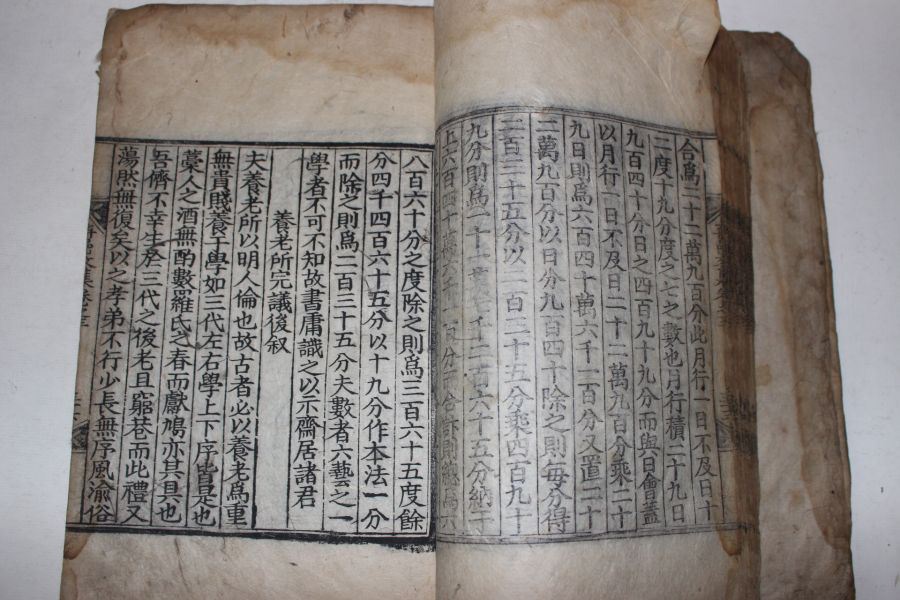 合爲二十二萬九百分此月行一日不及日十
二度十九分度之七之數也月行積二十九日
九百四十分日之四百九十九分而與日會蓋
以月行一日不及日二十二萬九百分乘二十
九日則爲六百四十萬六千一百分又置二十
二萬九百分以日分九百四十除之則每分得
二百三十五分以二百三十五分乘四百九十
九分則爲一十一萬七千二百六十五分納于
上六百四十萬六千一百分
八百六十分之度除之則爲三百六十五度餘
分四千四百六十五分以十九分作本法一分
而除之則爲二百三十五分夫數者六藝之一
學者不可不知故書庸識之以示齋居諸君
養老所完議後叙
夫養老所以明人倫也故古者必以養老爲重
無貴賤養于學如三代左右學上下序皆是也
藁人之酒無酌數羅氏之春而獻鳩亦其具也
吾儕不幸生於三代之後老且窮巷而此禮又
蕩然無復矣以之孝弟不行少長無序風渝俗